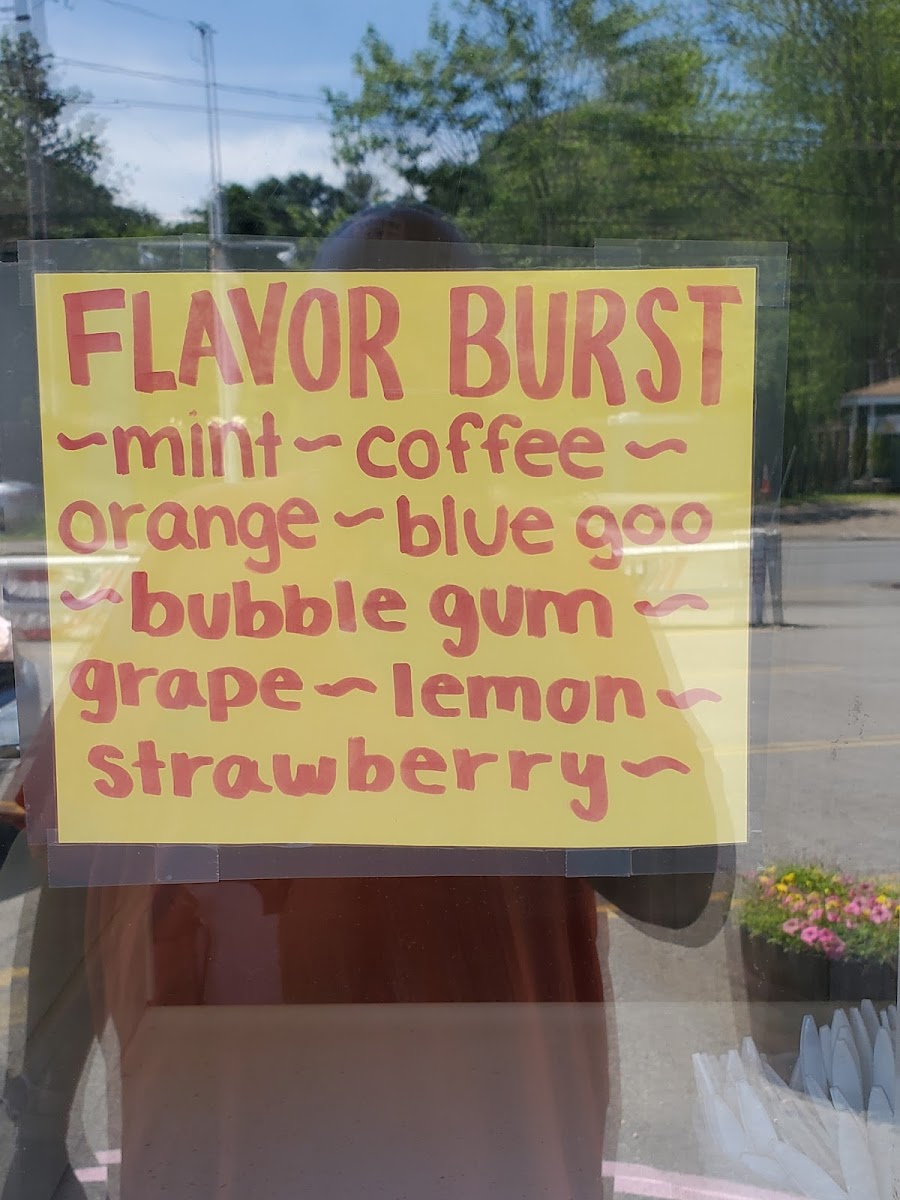 FLAVOR BURST
~mint~coffee~
orange~blue goo
~bubble gum~
grape~lemon~
strawberry~